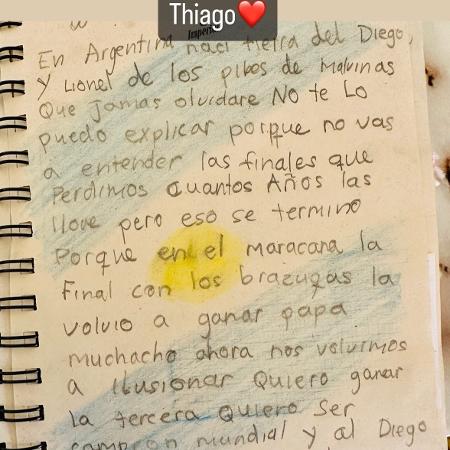 Thiago❤️
En Argentina naci tierra del Diego,
y Lionel de los pibes de Malvinas
Que jamas olvidare NO te Lo
puedo explicar porque no vas
a entender las finales que
Perdimos cuantos Años las
llore pero eso se termino
Porque en el maracana la
Final con los brazucas la
volvio a ganar papa
muchacho ahora nos volvimos
a ilusionar Quiero ganar
la tercera Quiero Ser
campeon mundial y al Diego